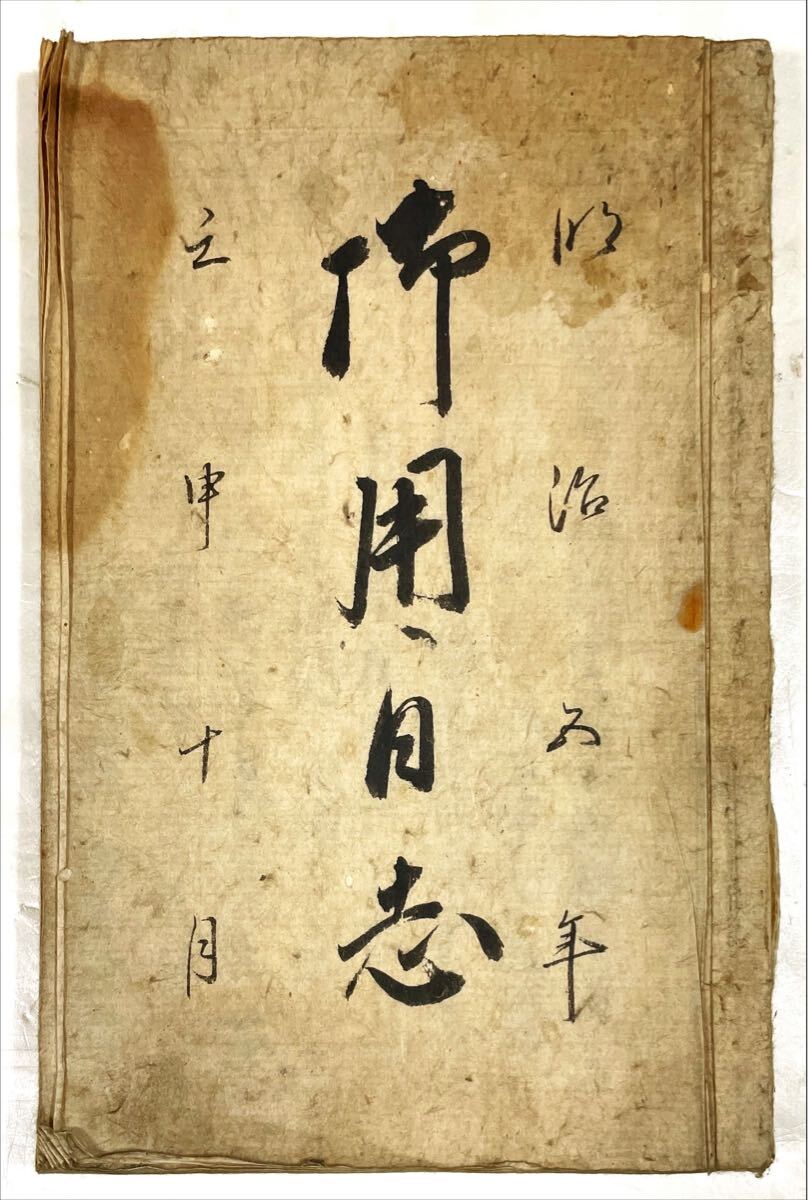 明治五年
御用日志
壬申十月